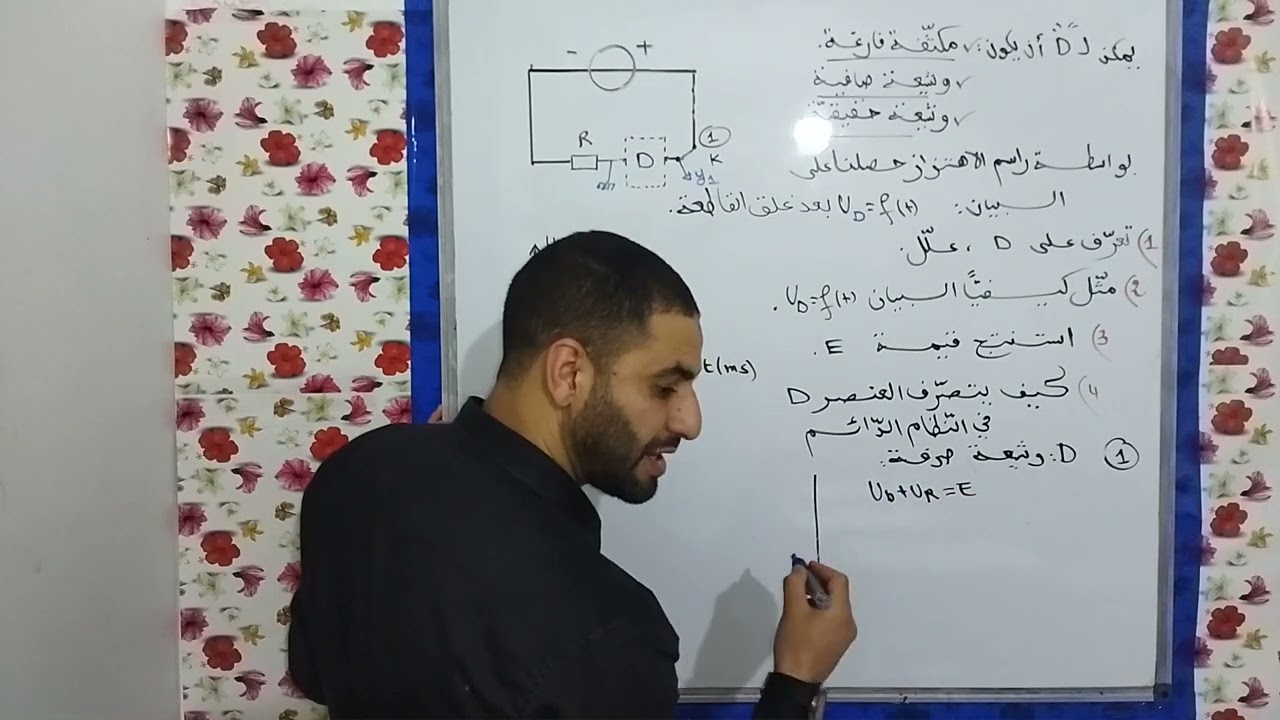 يمكن لـ "D" أن يكون: ✓ مكثّفة فارغة.
✓ وشيعة صافية
✓ وشيعة حقيقيّة
بواسطة راسم الاهتزاز حصلنا على
البيان: U_D=f(t) بعد غلق القاطعة.
1) تعرّف على D ، علّل.
2) مثّل كيفيًّا البيان U_D=f(t).
3) استنتج قيمة E.
4) كيف يتصرّف العنصر D
في النّظام الدّائم
① D: وشيعة صرفة:
U_D+U_R=E
- +
R
D
①
K
y1
t(ms)